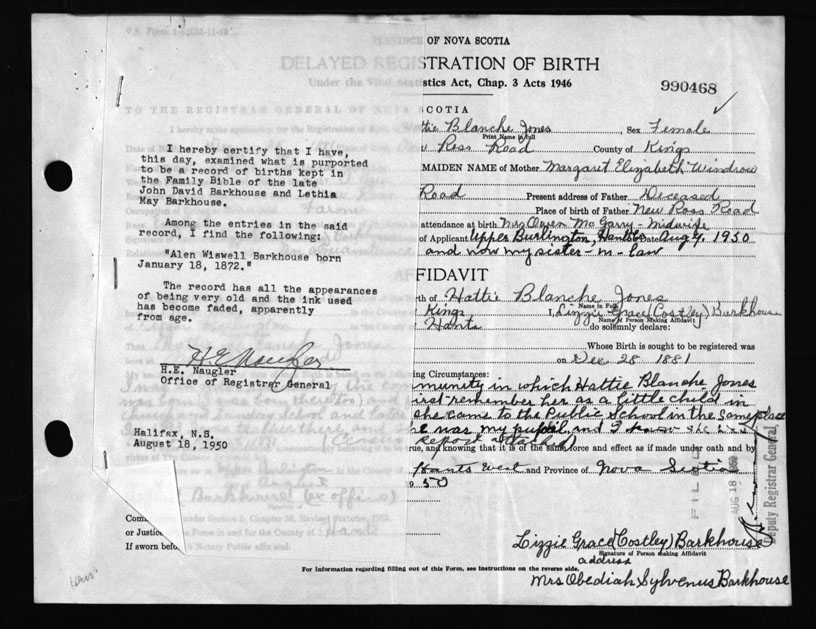 V.S. Form
PROVINCE OF NOVA SCOTIA
DELAYED REGISTRATION OF BIRTH
Under the Vital Statistics Act, Chap. 3 Acts 1946
990468
TO THE REGISTRAR GENERAL OF NOVA SCOTIA
tie Blanche Jones, Sex Female
Print Name in Full
Ross Road County of Kings
MAIDEN NAME of Mother Margaret Elizabeth Windrow
Road Present address of Father Deceased
Place of birth of Father New Ross Road
attendance at birth Mrs Owen McGarry - Midwife
of Applicant Upper Burlington, Hants Co Date Aug 4, 1950
and now my sister-in-law
I hereby certify that I have,
this day, examined what is purported
to be a record of births kept in
the Family Bible of the late
John David Barkhouse and Lethia
May Barkhouse.
Among the entries in the said
record, I find the following:
"Alen Wiswell Barkhouse born
January 18, 1872."
The record has all the appearances
of being very old and the ink used
has become faded, apparently
from age.
H.E. Naugler
H.E. Naugler
Office of Registrar General
Halifax, N.S.
August 18, 1950
AFFIDAVIT
rth of Hattie Blanche Jones
Name in Full
Kings I, Lizzie Grace (Costley) Barkhouse
Name of Person Making Affidavit
Hants do solemnly declare:
Whose Birth is sought to be registered was
on Dec 28 1881
ing Circumstances:
munity in which Hattie Blanche Jones
irst remember her as a little child in
she came to the Public School in the same place
he was my pupil, and I know she
Report attached)
rue, and knowing that it is of the same force and effect as if made under oath and by
Hants West and Province of Nova Scotia
9 50
FILED
AUG 18 1950
Deputy Registrar General
or Justice of the Peace in and for the County of Hants
If sworn before a Notary Public affix seal.
Lizzie Grace (Costley) Barkhouse
Signature of Person Making Affidavit
address
Mrs Obediah Sylvenus Barkhouse
For Information regarding filling out of this Form, see Instructions on the reverse side.